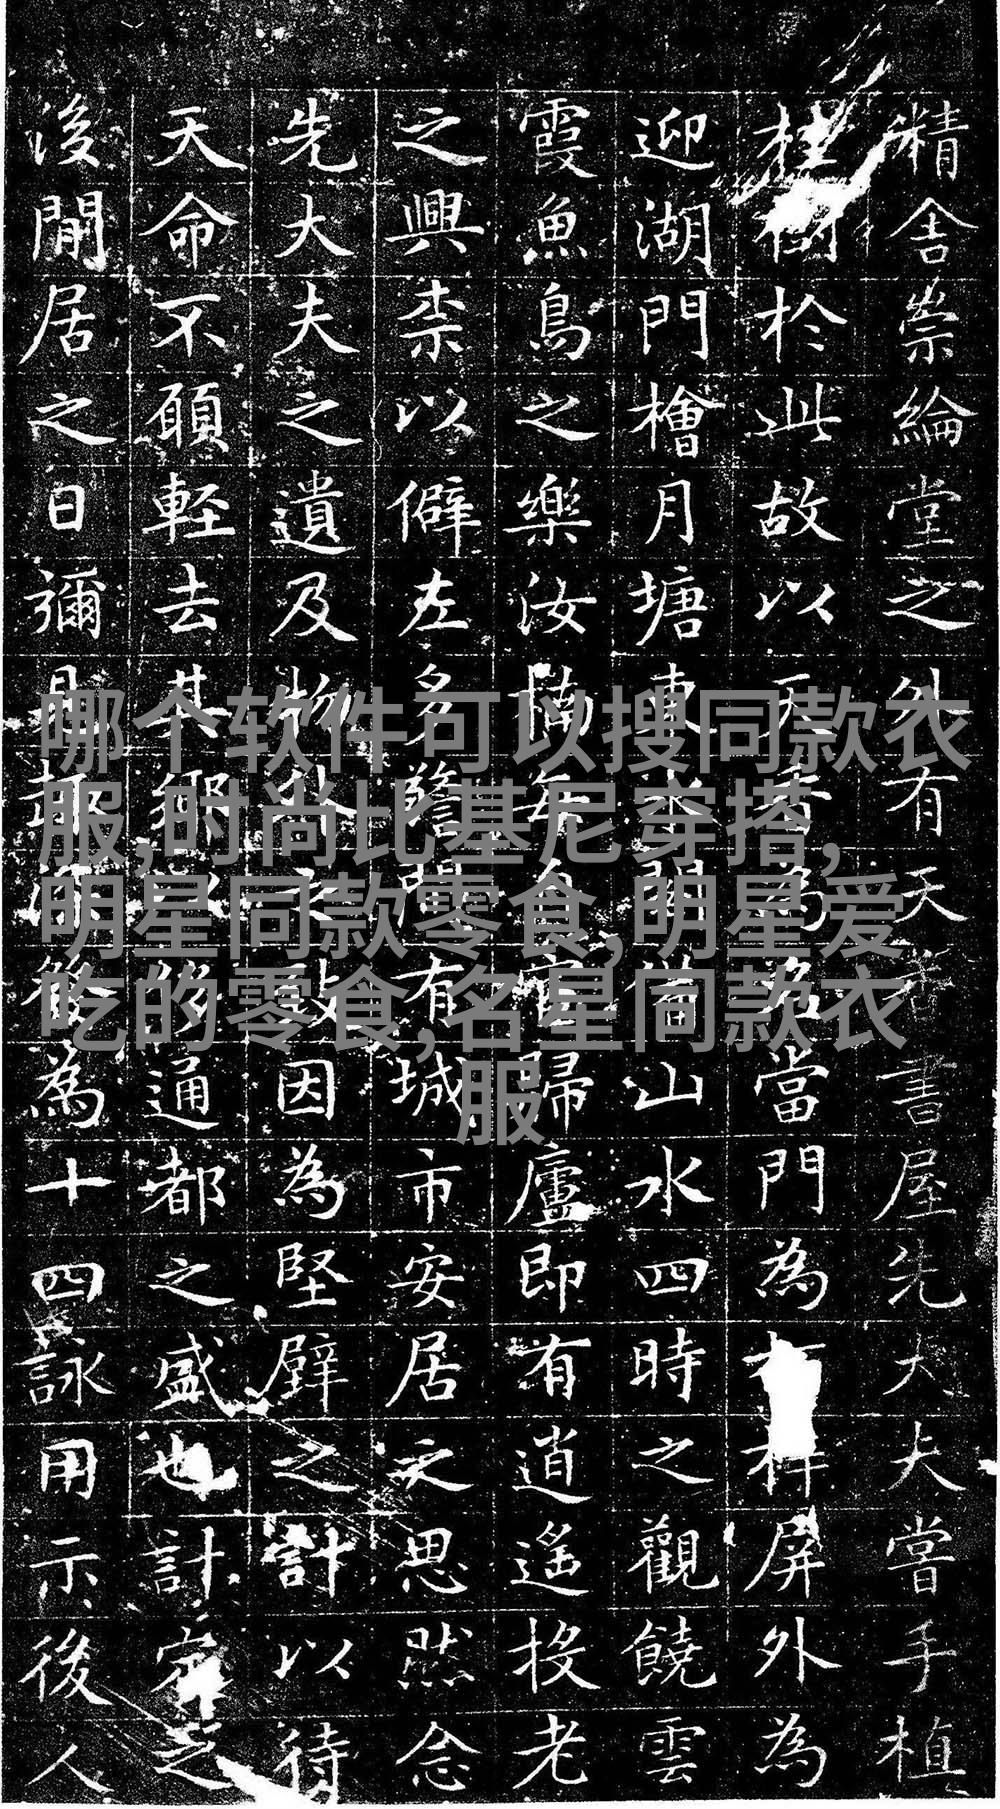 精舍崇綸堂之外有天香書屋先大夫嘗手植
桂樹於此故以天香為名當門為屏外為
迎湖門檜月塘東水關山水四時之觀饒雲
霞魚鳥之樂汝楠每自官歸廬即有逍遙投老
之興柰以僻左多警聞有城市安居之思然念
先大夫之遺及物外之致因為堅壁之計以待
天命不願輕去其鄉以移通都之盛也計定之
後閒居之日彌後為十四詠用示後人
哪个软件可以搜同款衣
服,时尚比基尼穿搭,
明星同款零食,明星爱
吃的零食,名星同款衣
服